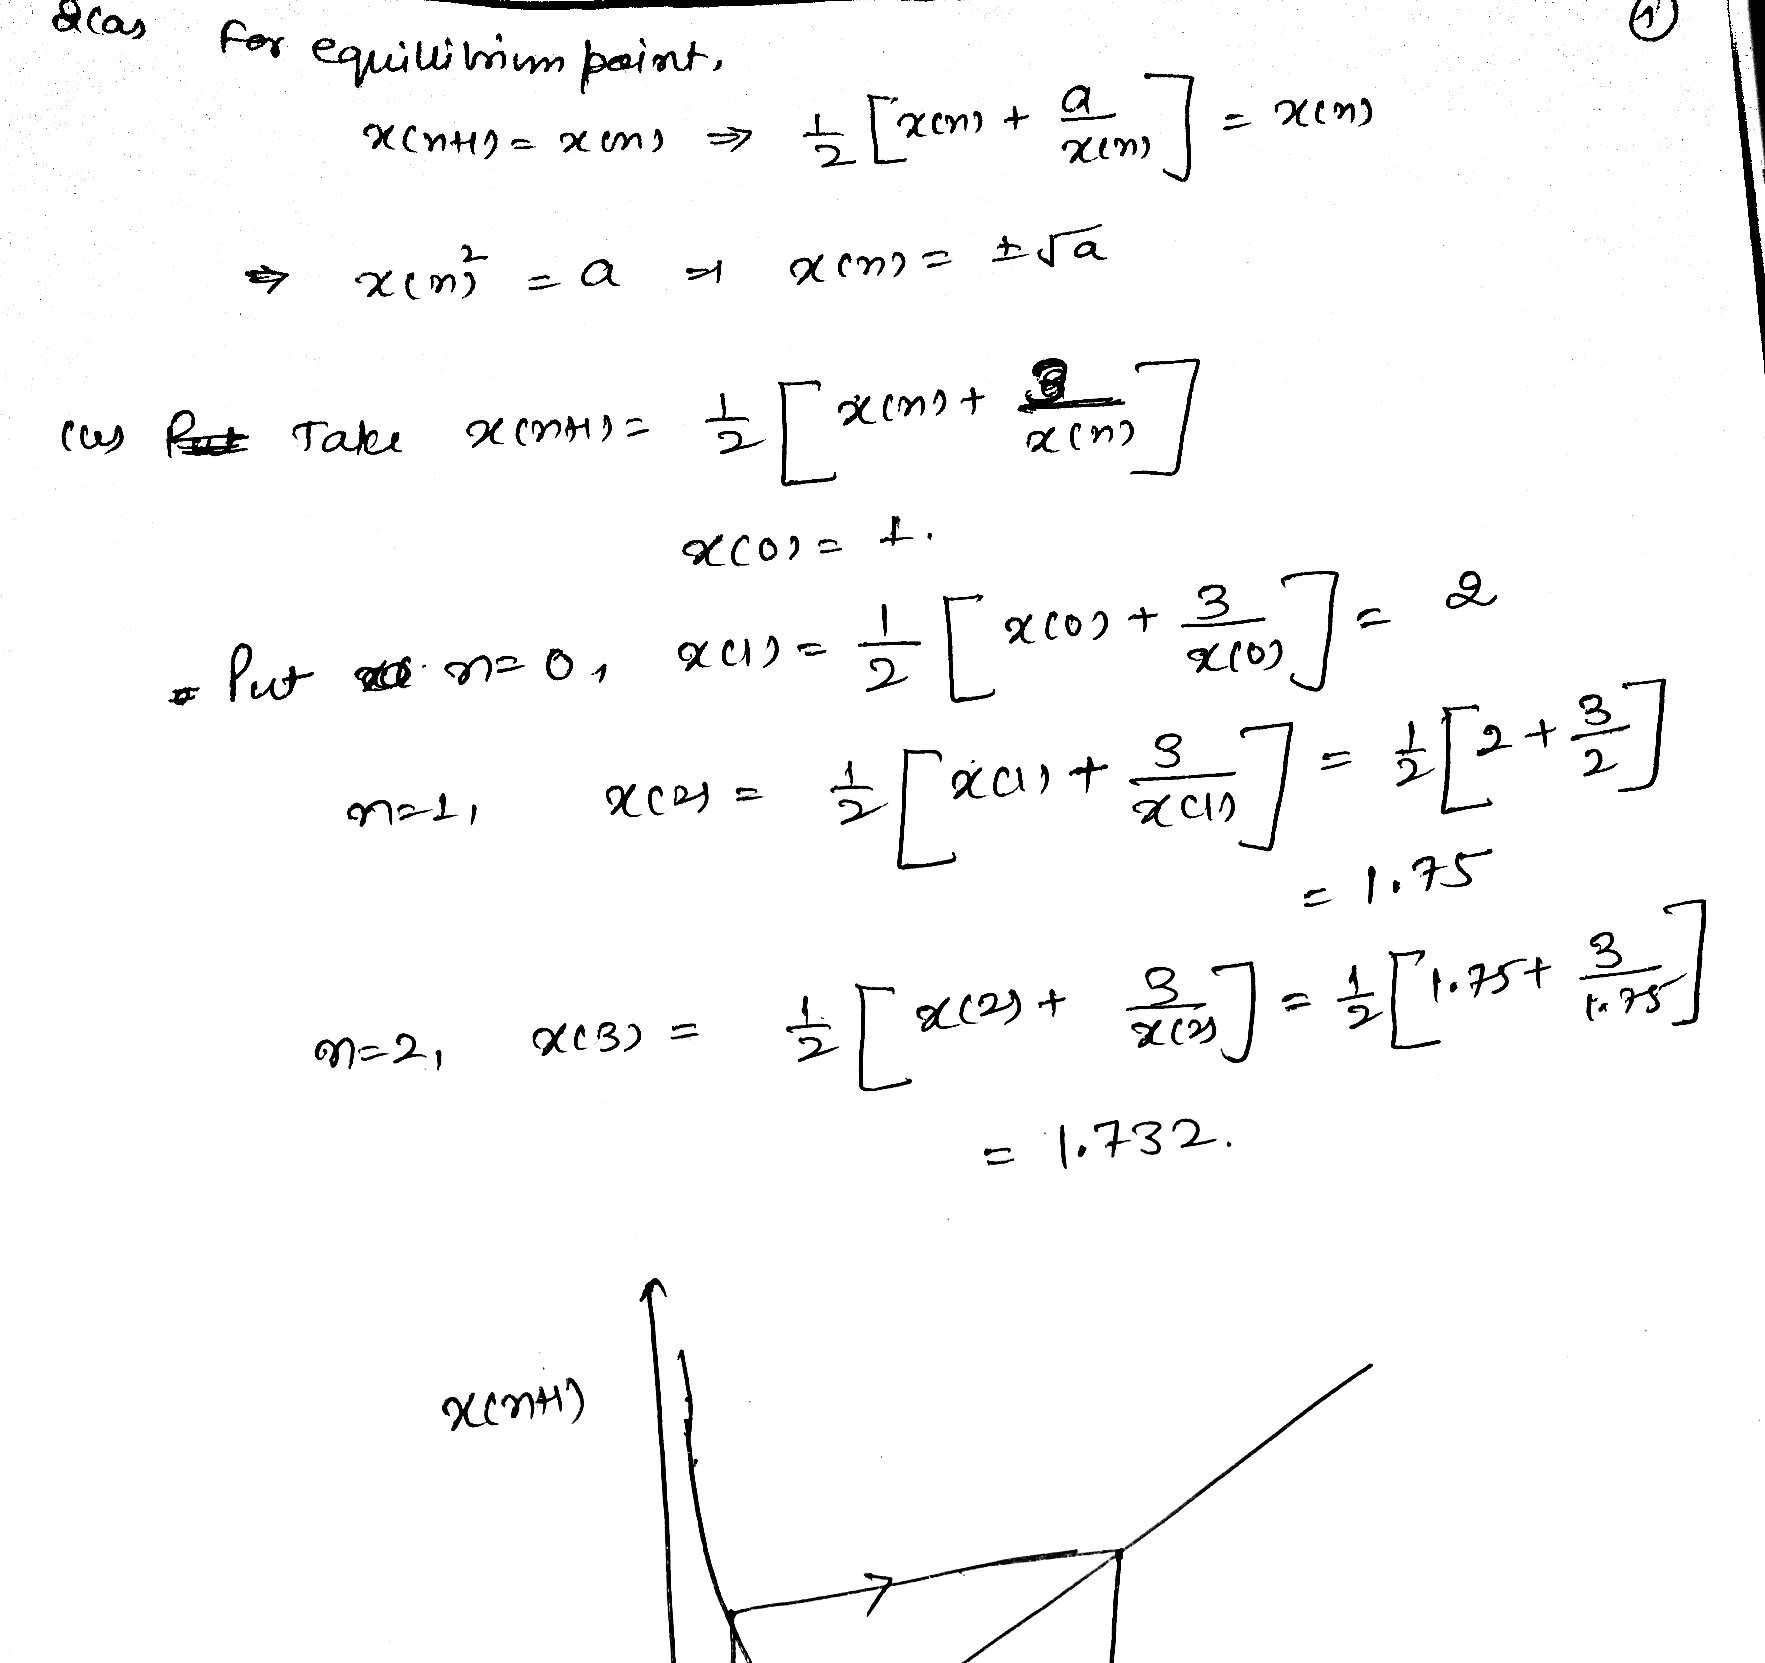 2(a) For equillibrium point, (1)
x(n+1) = x(n) ⇒ 1/2 [x(n) + a/x(n)] = x(n)
⇒ x(n)² = a ⇒ x(n) = ±√a
Take x(n+1) = 1/2 [x(n) + 3/x(n)]
x(0) = 1.
Put n=0, x(1) = 1/2 [x(0) + 3/x(0)] = 2
n=1, x(2) = 1/2 [x(1) + 3/x(1)] = 1/2 [2 + 3/2]
= 1.75
n=2, x(3) = 1/2 [x(2) + 3/x(2)] = 1/2 [1.75 + 3/1.75]
= 1.732.
x(n+1)